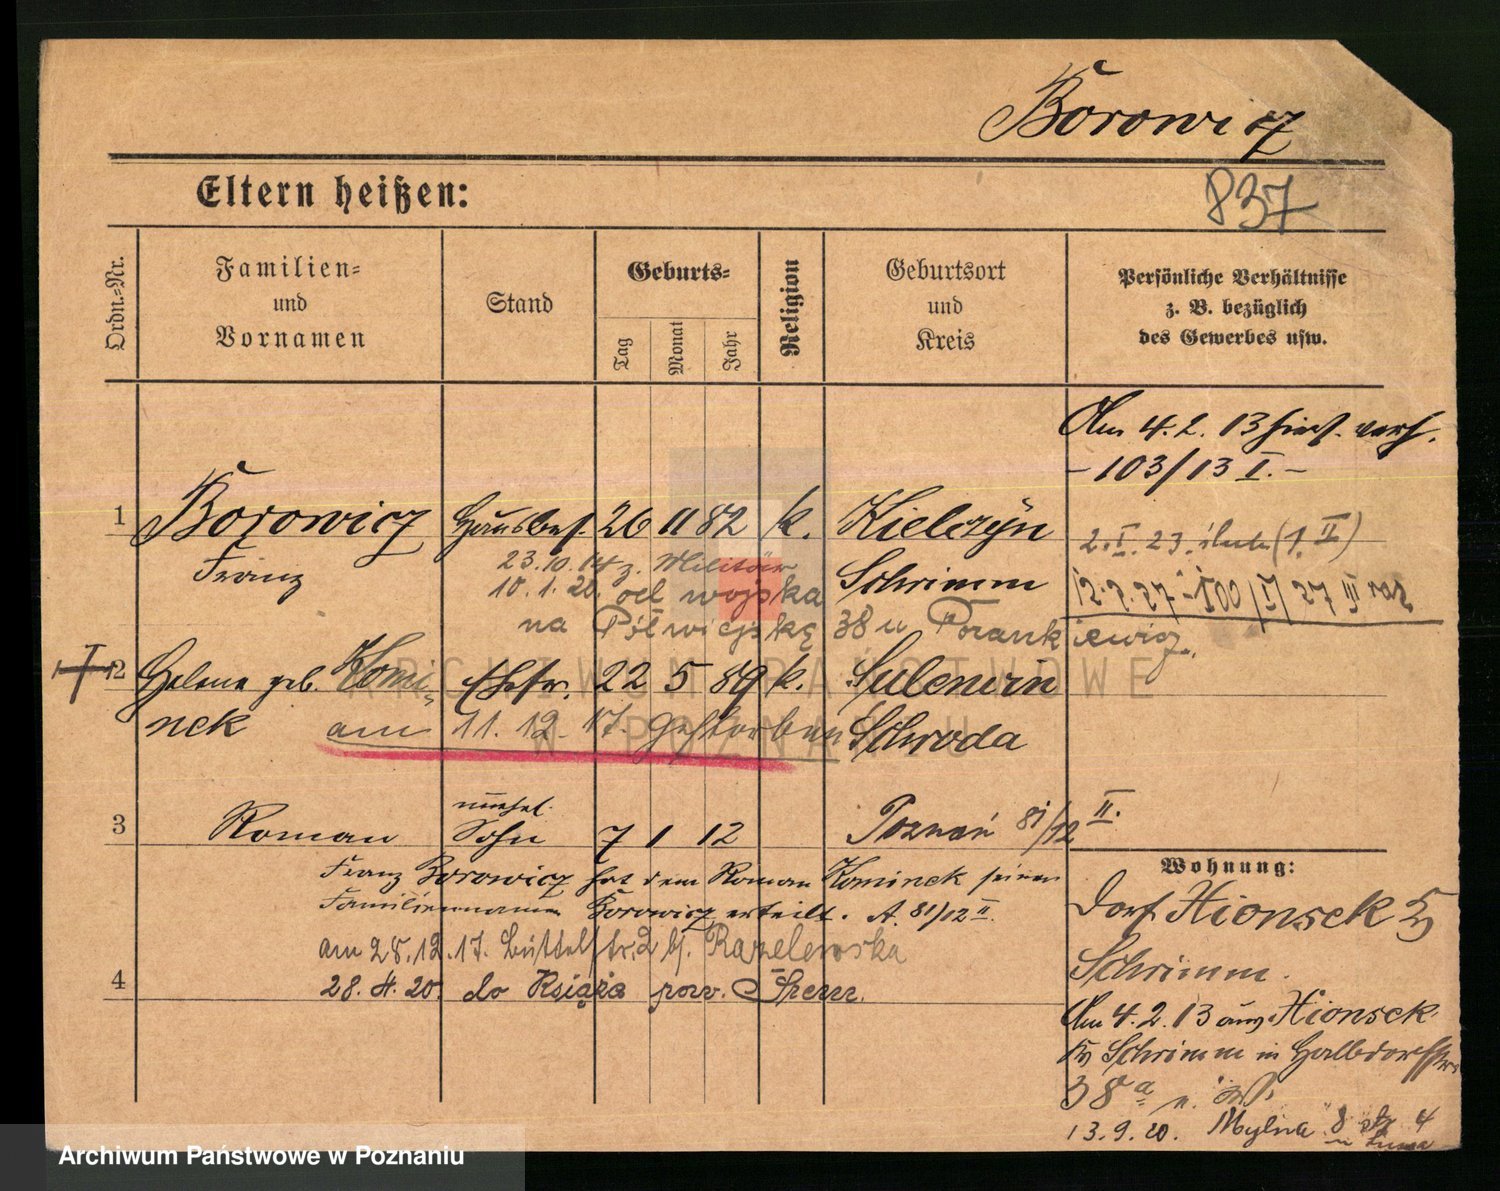 Borowicz
837
Eltern heißen:
Ordn.-Nr.
Familien-
und
Vornamen
Stand
Geburts-
Tag
Monat
Jahr
Religion
Geburtsort
und
Kreis
Persönliche Verhältnisse
z. B. bezüglich
des Gewerbes usw.
Am 4. 2. 13 hier
- 103/13 I. -
1 Borowicz Hausbes. 26 11 82 k. Kielczyn
2. I. 23. (1. II)
Franz 23.10.14 z. Militär Schrimm
10. 1. 20. od wojska
12. 7. 27 - 100/I/27 III
na Półwiejską 38 u
2 Helene geb. Komi- Ehefr. 22 5 89 k. Sulencin
nek am 11. 12. 17. gestorben Schroda
unehel.
3 Roman Sohn 7 1 12 Poznań 81/12 II.
Franz Borowicz hat dem Roman Kominek seinen
Familiennamen Borowicz erteilt. A. 81/12 II.
am 28. 12. 17. Büttelstr. 2 b/.
4 28. 4. 20. do Książa pow. Śrem.
Wohnung:
Dorf Xionsek
Schrimm.
Am 4. 2. 13 aus Xionsek
Schrimm in Halbdorfstr.
38 a
13. 9. 20. Mylna 8
ARCHIWUM PAŃSTWOWE
W POZNANIU
Archiwum Państwowe w Poznaniu